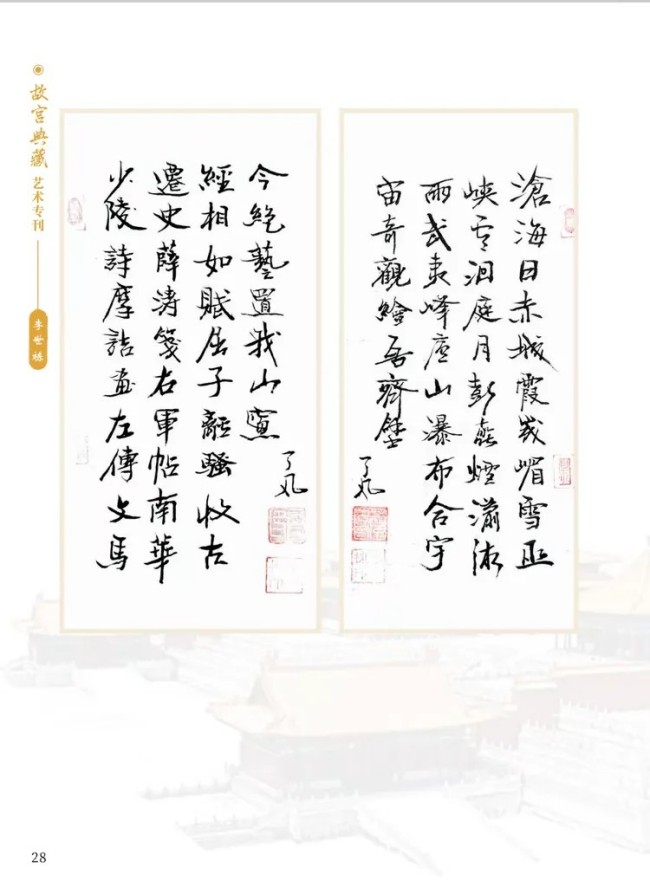 故宫典藏
艺术专刊
滄海日赤城霞峩嵋雪巫
峡雲洞庭月彭蠡煙瀟湘
雨武夷峰廬山瀑布合宇
宙奇觀繪吾齋壁
了凡
少陵詩摩詰画左傳文馬
遷史薛涛箋右軍帖南華
經相如賦屈子離騷收古
今絶藝置我山窗
了凡
28